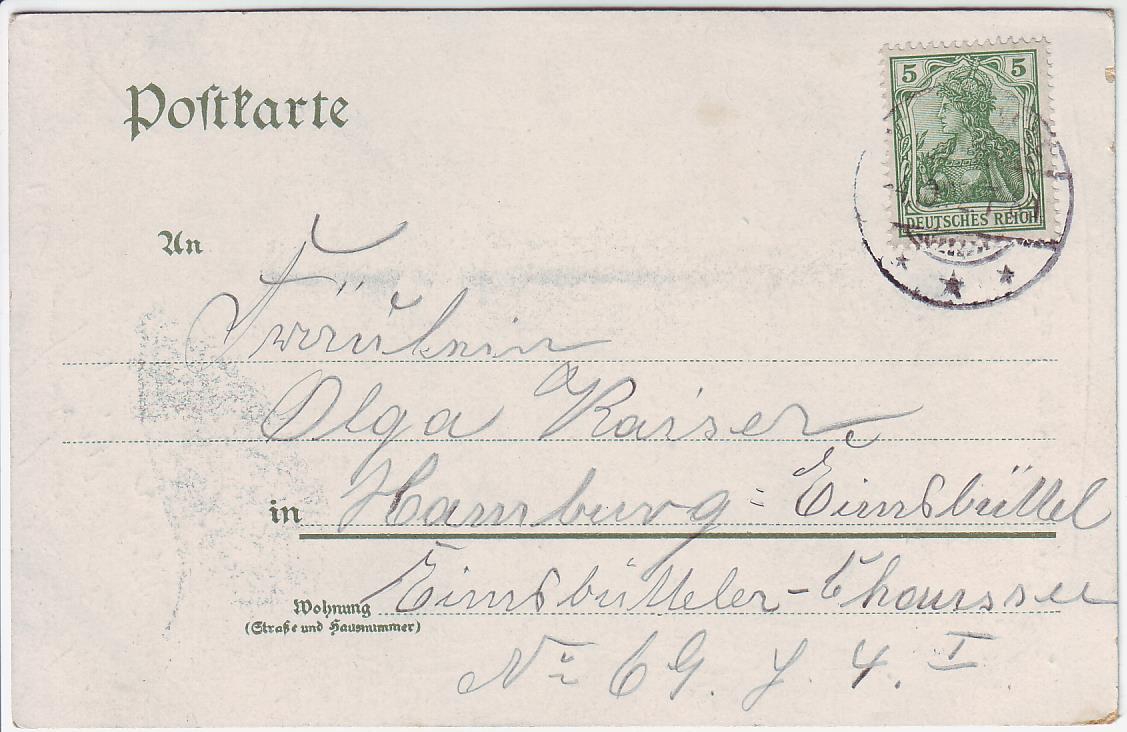 Postkarte
5 5
DEUTSCHES REICH
An
Fräulein
Olga Kaiser
in Hamburg = Eimsbüttel
Wohnung Eimsbütteler-Chaussee
(Straße und Hausnummer)
No 69. 4. I